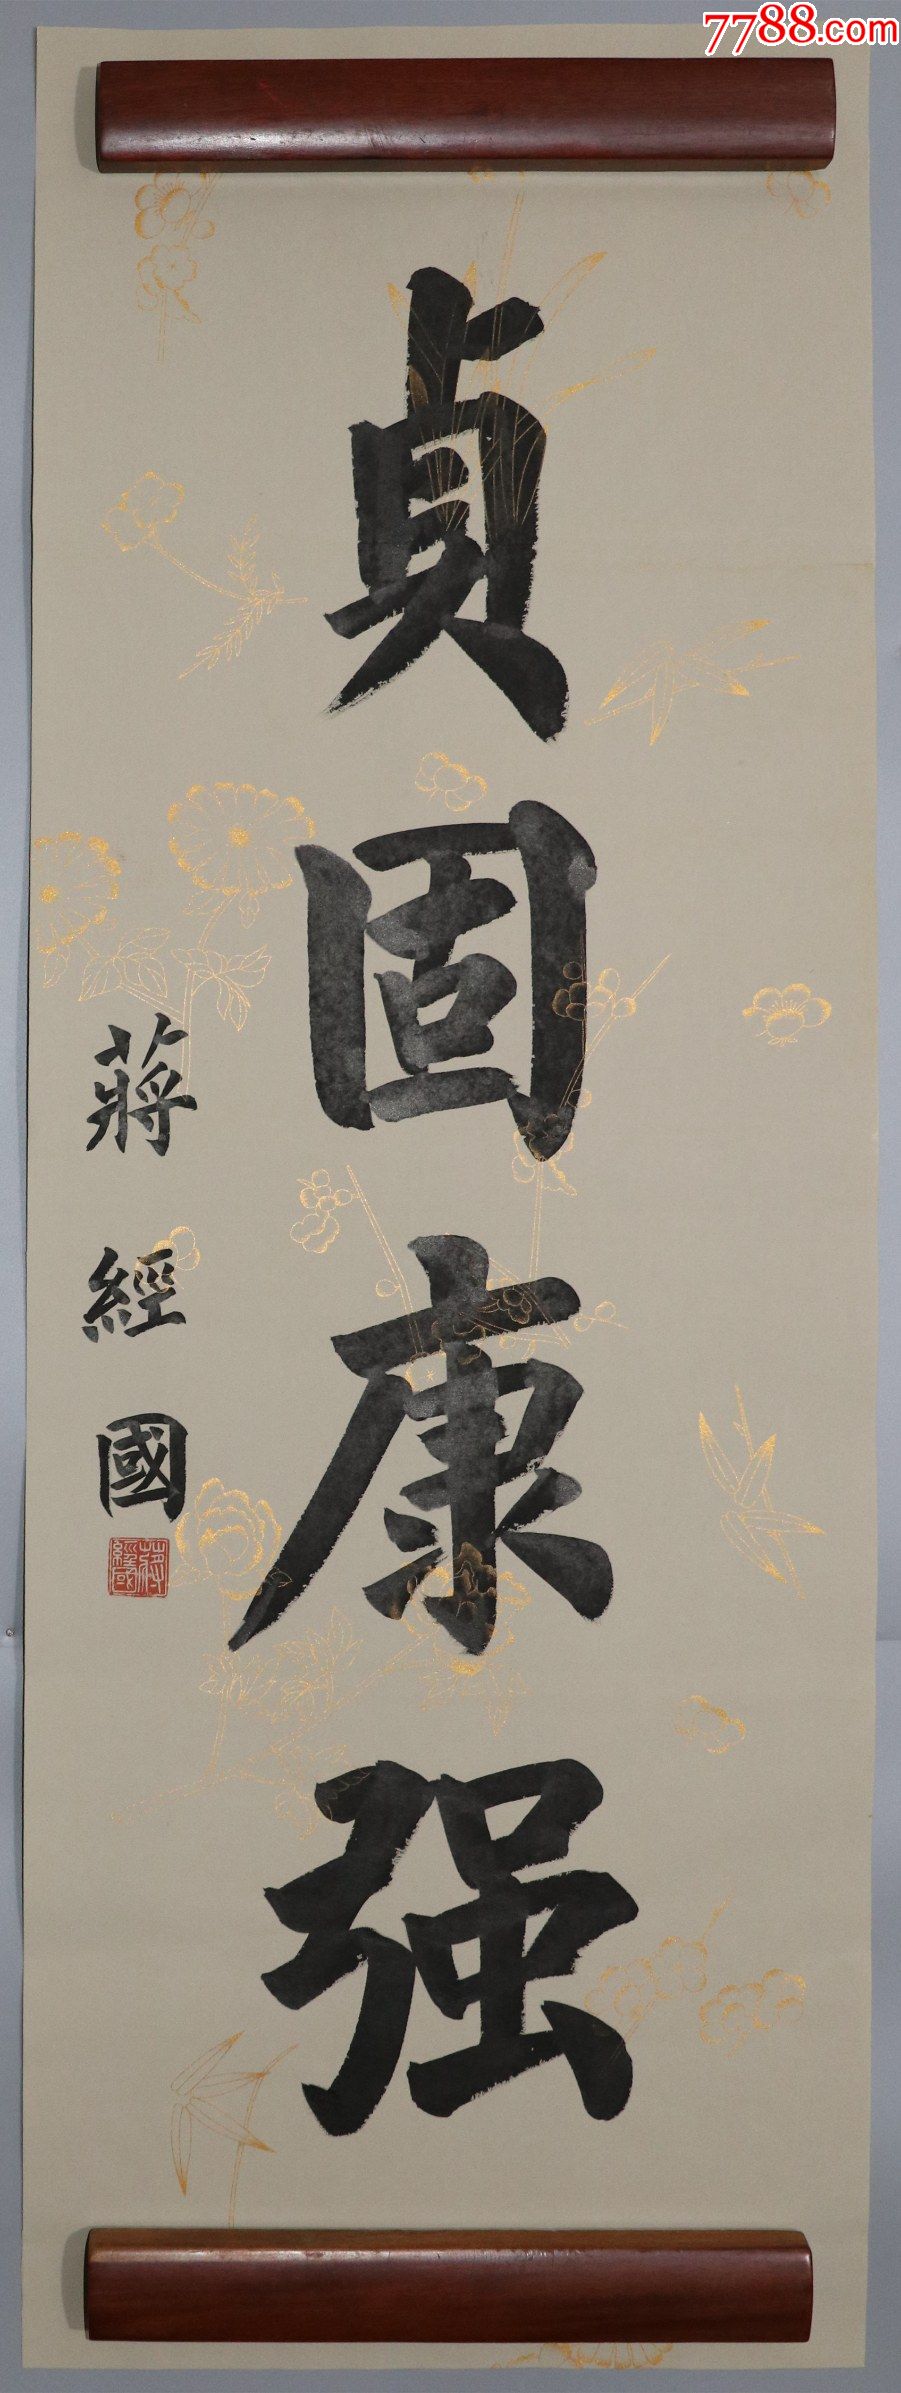 7788.com
貞固康强
蔣經國
蔣經國